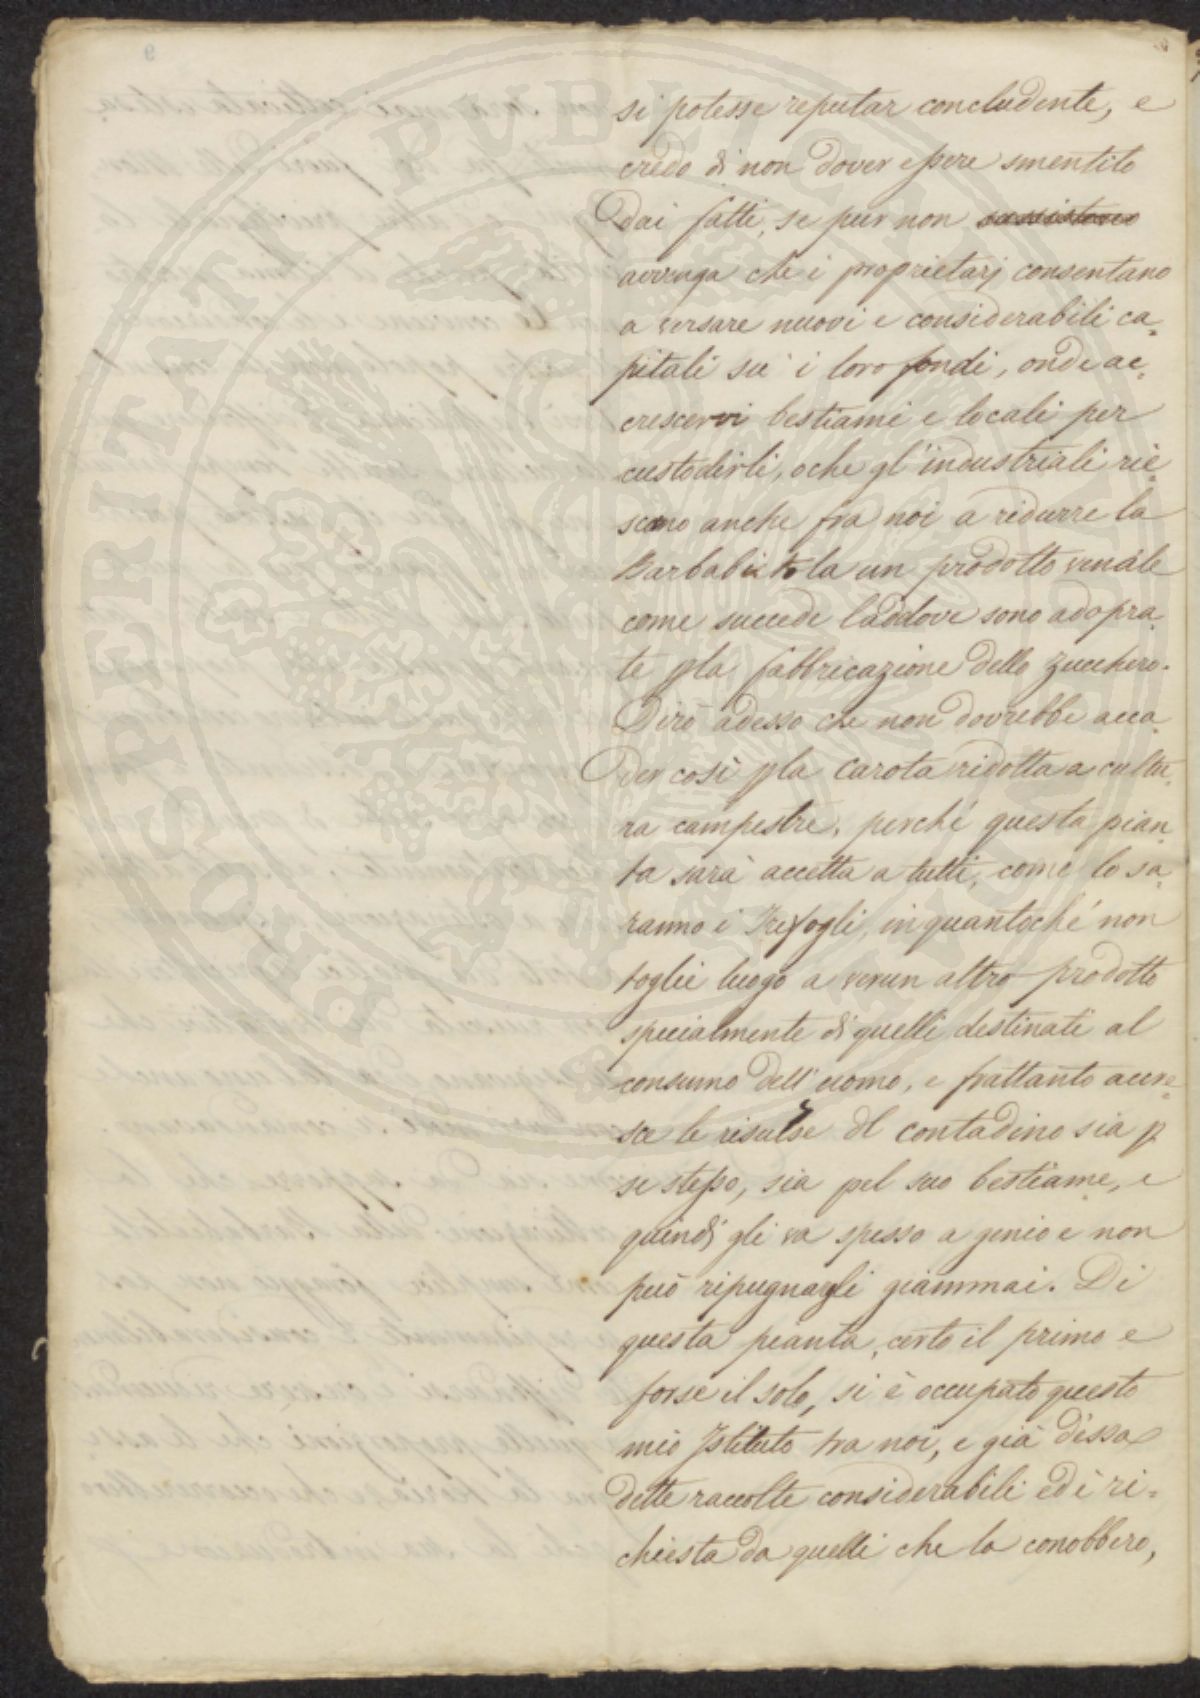 si potesse reputar concludente, e
credo di non dover essere smentito
dai fatti, se pur non
avvenga che i proprietarj consentano
a versare nuovi e considerabili ca„
pitali su' i loro fondi, onde ac„
crescervi bestiami e locali per
custodirli, o che gl'industriali rie„
scano anche fra noi a ridurre la
Barbabietola un prodotto venale
come succede laddove sono adopra„
te pla fabbricazione dello zucchero.
Dirò adesso che non dovrebbe acca„
der così pla Carota ridotta a cultu„
ra campestre, perché questa pian„
ta sarà accetta a tutti, come lo sa„
ranno i Trifogli, inquantoché non
toglie luogo a verun altro prodotto
specialmente di quelli destinati al
consumo dell'uomo, e frattanto accre„
sce le risorse dl contadino sia p
se stesso, sia pel suo bestiame, e
quindi gli va spesso a genio e non
può ripugnargli giammai. Di
questa pianta, certo il primo e
forse il solo, si è occupato questo
mio Istituto tra noi, e già d'essa
dette raccolte considerabili ed è ri„
chiesta da quelli che la conobbero,
PROSPERITATI PUBLICAE